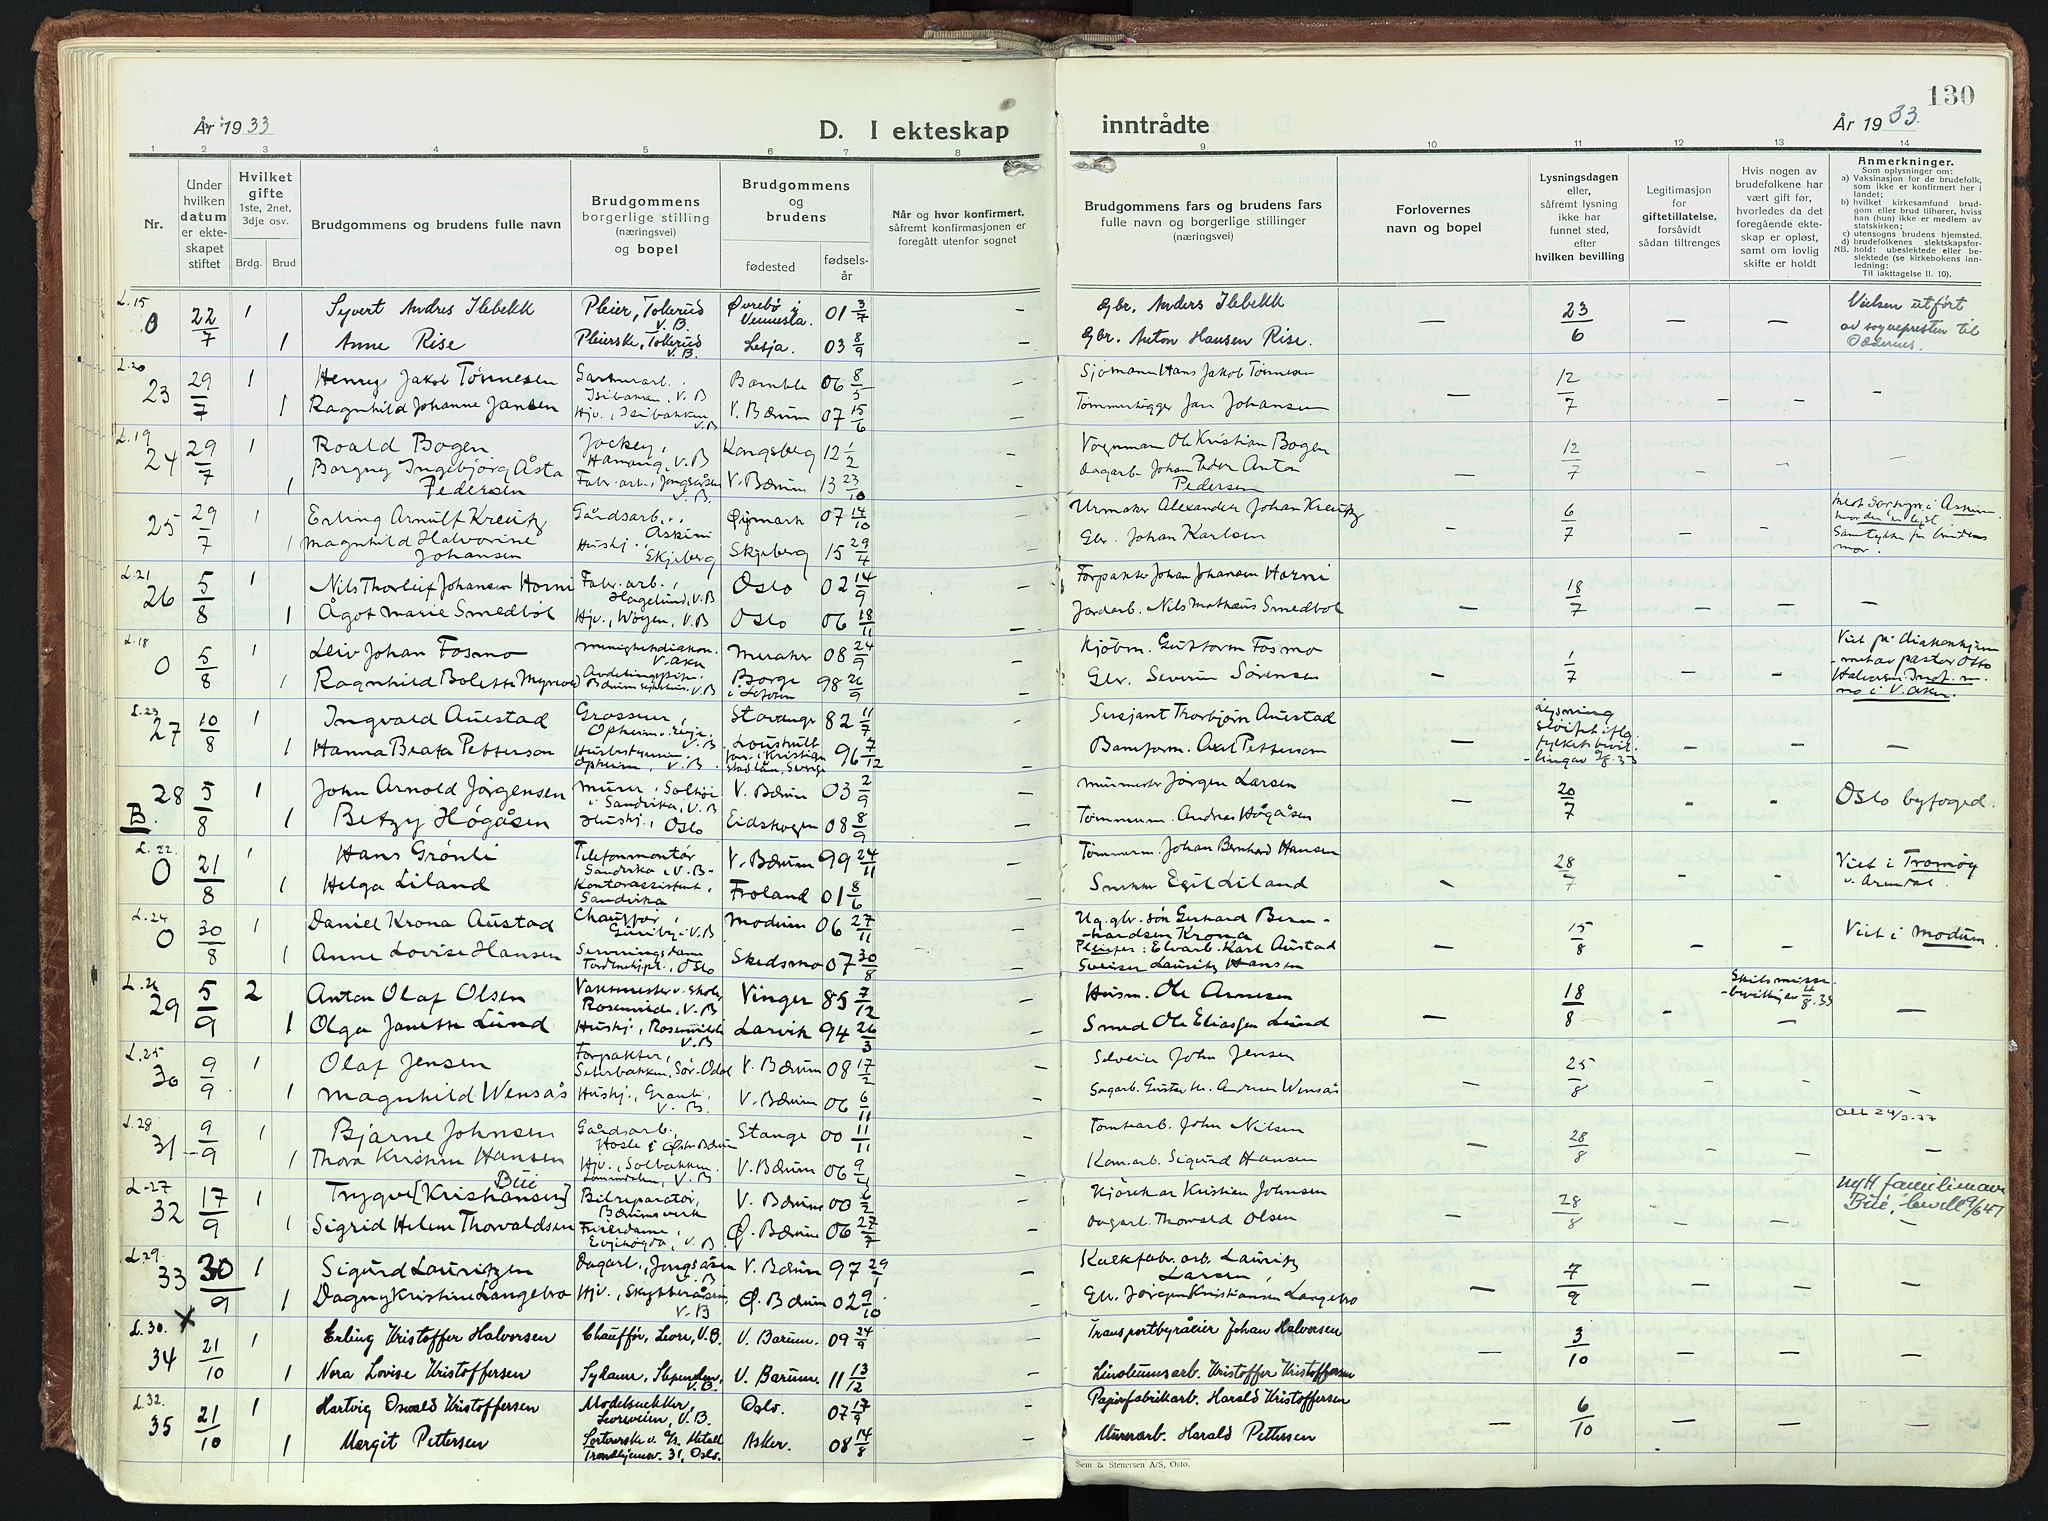 130
År 1933
D. I ekteskap
inntrådte
År 1933.
1 2 3 4 5 6 7 8 9 10 11 12 13 14
Nr.
Under hvilken datum er ekteskapet stiftet
Hvilket gifte
1ste, 2net, 3dje osv.
Brdg. Brud
Brudgommens og brudens fulle navn
Brudgommens borgerlige stilling (næringsvei) og bopel
Brudgommens og brudens
fødested
fødselsår
Når og hvor konfirmert, såfremt konfirmasjonen er foregått utenfor sognet
Brudgommens fars og brudens fars fulle navn og borgerlige stillinger (næringsvei)
Forlovernes navn og bopel
Lysningsdagen eller, såfremt lysning ikke har funnet sted, efter hvilken bevilling
Legitimasjon for giftetillatelse, forsåvidt sådan tiltrenges
Hvis nogen av brudefolkene har vært gift før, hvorledes da det foregående ekteskap er opløst, samt om lovlig skifte er holdt
Anmerkninger.
Som oplysninger om:
a) Vaksinasjon for de brudefolk, som ikke er konfirmert her i landet;
b) hvilket kirkesamfund brudgom eller brud tilhører, hviss han (hun) ikke er medlem av statskirken;
c) utensogns brudens hjemsted.
d) brudefolkenes slektskapsforhold: ubeslektede eller beslektede (se kirkebokens innledning:
NB.
Til iakttagelse II. 10).
L.15 0 22/7 1 Syvert Andres Ilebekk Pleier, Tokerud V.B. Øvrebø i Vennesla. 01 3/7 — Gbr. Anders Ilebekk — 23/6 — — Vielsen utført av sognepresten til Oddernes.
1 Anne Rise Pleierske, Tokerud V.B. Lesja. 03 8/9 — Gbr. Anton Hansen Rise.
L.20 23 29/7 1 Henry Jakob Tønnesen V.B Bamble 06 8/5 — Sjømann Hans Jakob Tønnesen — 12/7 — — —
1 Ragnhild Johanne Jansen Hjv., Isibakken V.B V. Bærum 07 15/6 — Tømmerhugger Jan Johansen
L.19 24 29/7 1 Roald Bogen Jockey, V.B Kongsberg 12 1/2 — Vognman Ole Kristian Bogen — 12/7 — —
1 Borgny Ingebjørg Åsta Pedersen Fabr.arb., Jongsåsen V.B. V. Bærum 13 23/10 — Dagarb. Johan Peder Anton Pedersen
25 29/7 1 Erling Arnulf Kreutz Gårdsarb., Askim Øymark 07 14/10 Urmaker Alexander Johan Kreutz — 6/7 — — Askim
1 Magnhild Halvorine Johansen Hushj., Skjeberg Skjeberg 15 29/4 — Gbr. Johan Karlsen Samtykke fra brudens mor.
L.21 26 5/8 1 Nils Thorleif Johansen Horni Fabr.arb., Hagelund, V.B Oslo 02 14/9 Forpakter Johan Johansen Horni — 18/7 — — —
1 Ågot Marie Smedbøl Hjv., Wøyen, V.B Oslo 06 18/11 — Jordarb. Nils Mathæus Smedbøl
L.18 0 5/8 1 Leiv Johan Fosmo Menighetsdiakon. V. Aker Meraker 08 24/9 — Kjøbm. Gustorm Fosmo — 1/7 — — Viet på Diakonhjemmet av pastor Otto V. Aker.
1 Ragnhild Bolette V.B Borge i Lofoten 98 26/9 — Gbr. Severin Sørensen
L.23 27 10/8 1 Ingvald Austad Grosserer, Opheim V.B Stavanger 82 11/7 — Sersjant Thorbjørn Austad — Lysning sløifet ifølg. fylkets bevilling av 2/8.33 — — —
1 Hanna Beata Petterson Husbestyrerin Opheim, V.B. Kristianstadslän, Sverige 96 7/12 — Baneform. Axel Petterson
28 B. 5/8 1 John Arnold Jørgensen Murer, Solhøi i Sandvika, V.B V. Bærum 03 2/9 Murmester Jørgen Larsen — 20/7 — — Oslo byfoged.
1 Betzy Høgåsen Hushj., Oslo Eidskogen 08 8/9 — Tømmerm. Andreas Høgåsen
L.22. 0 21/8 1 Hans Grønli Telefonmontør Sandvika, V.B- V. Bærum 99 24/11 — Tømmerm. Johan Bernhard Hansen — 28/7 — — Viet i Tromøy v. Arendal.
1 Helga Liland Kontorassistent, Sandvika Froland 01 8/6 — Snekker Egil Liland
L.24 0 30/8 1 Daniel Krona Austad Chauffør, V.B Modum 06 27/11 Ug. gbr. søn Gerhard Bernhardsen Krona — 15/8 — — Viet i Modum.
Pleiefar: Elvarb. Karl Austad
1 Anne Lovise Hansen Serveringsdame Oslo Skedsmo 07 30/8 — Sveiser Lauritz Hansen
L.26 29 5/9 2 Anton Olaf Olsen Vaktmester v. skole, Rosenvilde, V.B Vinger 85 7/12 Husm. Ole Arnesen — 18/8 — Skilsmisse-bevilling av 4/8.33 —
1 Olga Janette Lund Hushj., Rosenvilde V.B Larvik 94 26/3 — Smed Ole Eliassen Lund
L.25 30 9/9 1 Olaf Jensen Forpakter, Sør-Odal V. Bærum 08 17/2 — John Jensen — 25/8 — — —
1 Magnhild Wensås Hushj., V.B. V. Bærum 06 6/11 — Sagarb. Gustav M. Andersen Wensås
L.28 31 9/9 1 Bjarne Johnsen Gårdsarb., Hosle i Østre Bærum Stange 00 11/11 — Tomtearb. John Nilsen — 28/8 — — Att 24/3-77
1 Thora Kristine Hansen Hjv., Solbakken, Lommedalen, V.B V. Bærum 06 9/4 — Kom.arb. Sigurd Hansen
L.27 32 17/9 1 Trygve [Kristiansen] Bie Bilreparatør, Bærumsverk V. Bærum 00 6/2 — Kjørekar Kristian Johnsen — 28/8 — — nytt familienavn Bie, bevill. 9/6 47
1 Sigrid Helene Thorvaldsen Frisørdame, Evjehøgda, V.B. Ø. Bærum 06 27/7 — Dagarb. Thorvald Olsen
L.29. 33 30/9 1 Sigurd Lauritzen Dagarb., Jongsåsen V.B V. Bærum 97 29/1 — Kalkfabr. arb. Lauritz Larsen — 7/9 — — —
1 Dagny Kristine Langebro Hjv., V.B Ø. Bærum 02 9/10 — Gbr. Jørgen Kristiansen Langebro
L.30. X 34 21/10 1 Erling Kristoffer Halvorsen Chauffør, Levre, V.B. V. Bærum. 09 24/9 Transportbyråeier Johan Halvorsen — 3/10 — — —
1 Nora Lovise Kristoffersen Sydame, Stependen, V.B. V. Bærum. 11 13/12 — Linoleumsarb. Kristoffer Kristoffersen
L.32. 35 21/10 1 Hartvig Oswald Kristoffersen Modelsnekker, Levreveien, V.B. Oslo. 07 17/9 — Papirfabrikkarb. Harald Kristoffersen — 6/10 — — —
1 Margit Pettersen Sorterske v. A/S. Metall Trondhjemsv. 31, Oslo. Asker. 08 14/8 — Murerarb. Harald Pettersen
Sem & Stenersen A/S, Oslo.